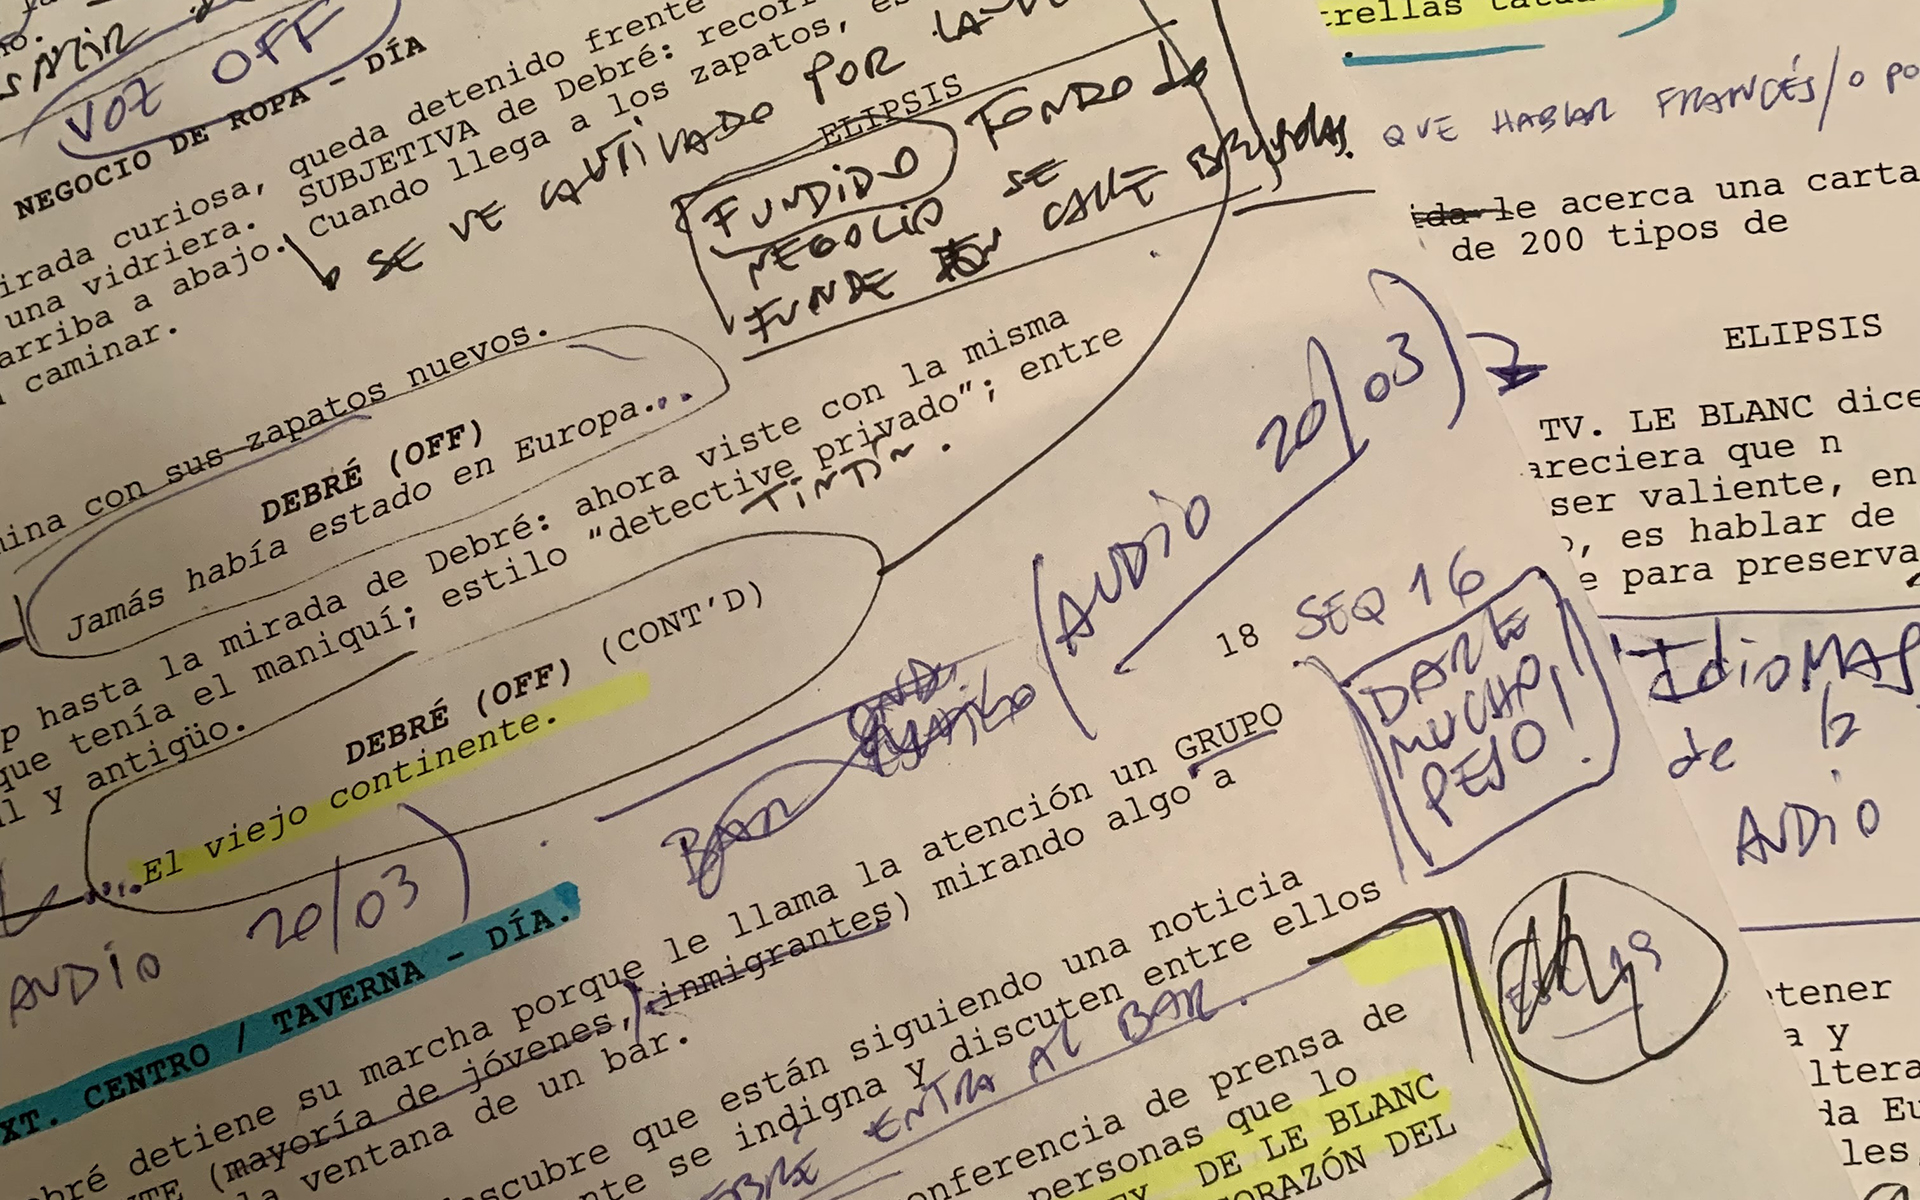 VOZ OFF
NEGOCIO DE ROPA - DÍA
irada curiosa, queda detenido frente
una vidriera. SUBJETIVA de Debré: recorr
arriba a abajo. Cuando llega a los zapatos, es
caminar.
SE VE CAUTIVADO POR LA
ELIPSIS
FUNDIDO FONDO de
NEGOCIO SE
FUNDE EN CALLE BRUSELAS.
ina con sus zapatos nuevos.
DEBRÉ (OFF)
Jamás había estado en Europa...
p hasta la mirada de Debré: ahora viste con la misma
que tenía el maniquí; estilo "detective privado"; entre
l y antigüo.
TINTIN.
DEBRÉ (OFF) (CONT'D)
...El viejo continente.
AUDIO 20/03)
(AUDIO 20/03)
BAR
XT. CENTRO / TAVERNA - DÍA.
18 SEQ 16
DARLE
MUCHO
PESO!
bré detiene su marcha porque le llama la atención un GRUPO
TE (mayoría de jóvenes, inmigrantes) mirando algo a
la ventana de un bar.
scubre que están siguiendo una noticia
nte se indigna y discuten entre ellos
EBRE ENTRA AL BAR.
onferencia de prensa de
personas que lo
EY. DE LE BLANC
CORAZÓN DEL
trellas tatua
QUE HABLAR FRANCÉS/O PO
ida le acerca una carta
de 200 tipos de
ELIPSIS
TV. LE BLANC dice
areciera que n
ser valiente, en
o, es hablar de
e para preserva
IdioMAS
de 12
AUDIO
tener
a y
ltera
da Eu
les,